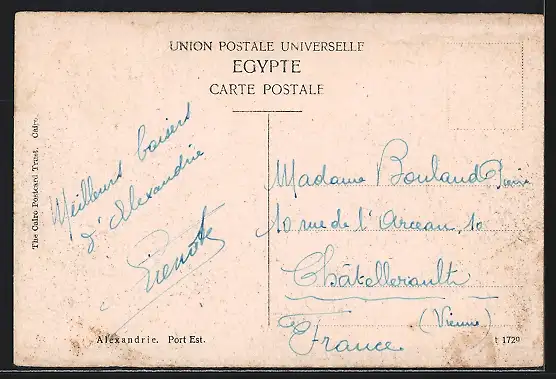 UNION POSTALE UNIVERSELLE
EGYPTE
CARTE POSTALE
The Cairo Postcard Trust. Cairo.
Meilleurs baisers
d'Alexandrie
Madame Bouland
10 rue de l'Arceau, 10
Châtellerault
(Vienne)
France
Alexandrie. Port Est.
t 1720